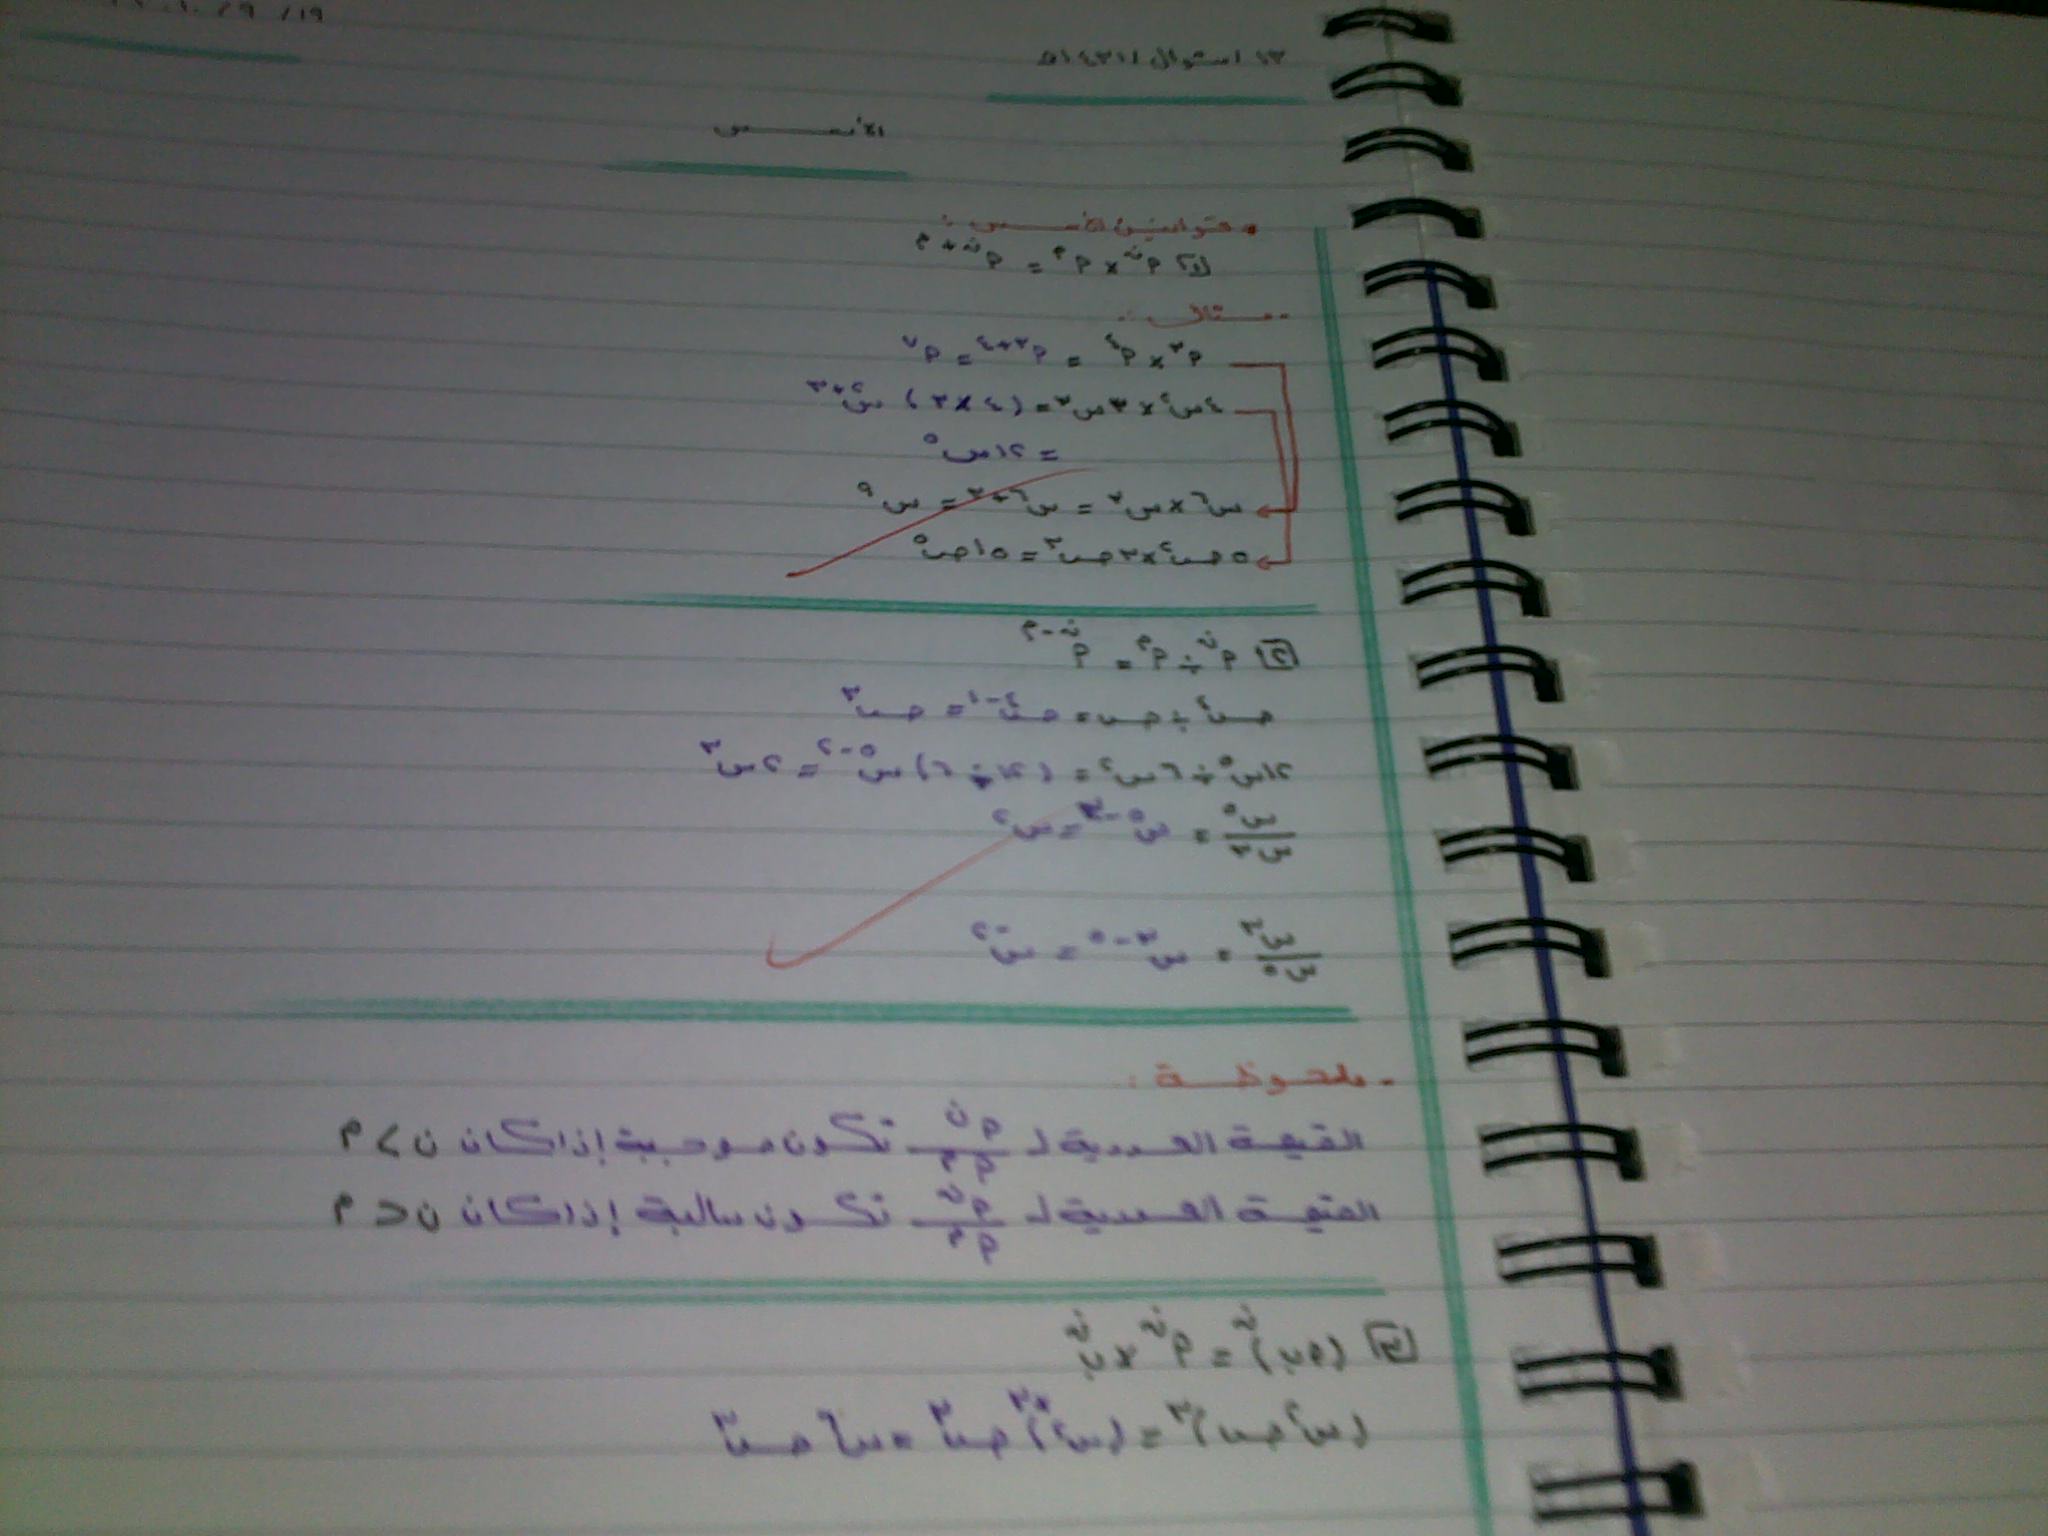 الأسس
قوانين الأسس :
[١] م^ن × م^م = م^(ن+م)
مثال :
٤س^٢ × ٣س^٣ = (٤×٣) س^(٢+٣)
= ١٢س^٥
٥ص^٢ × ٣ص^٣ = ١٥ص^٥
[٢] م^ن ÷ م^م = م^(ن-م)
١٢س^٥ ÷ ٦س^٢ = (١٢ ÷ ٦) س^(٥-٢) = ٢س^٣
س^٥ / س^٣ = س^(٥-٣) = س^٢
س^٣ / س^٥ = س^(٣-٥) = س^-٢
ملحوظة :
القيمة العددية لـ م^ن / م^م تكون موجبة إذا كان ن > م
القيمة العددية لـ م^ن / م^م تكون سالبة إذا كان ن < م
[٣] (م ب)^ن = م^ن × ب^ن
(س^٢ ص)^٣ = (س^٢)^٣ ص^٣ = س^٦ ص^٣